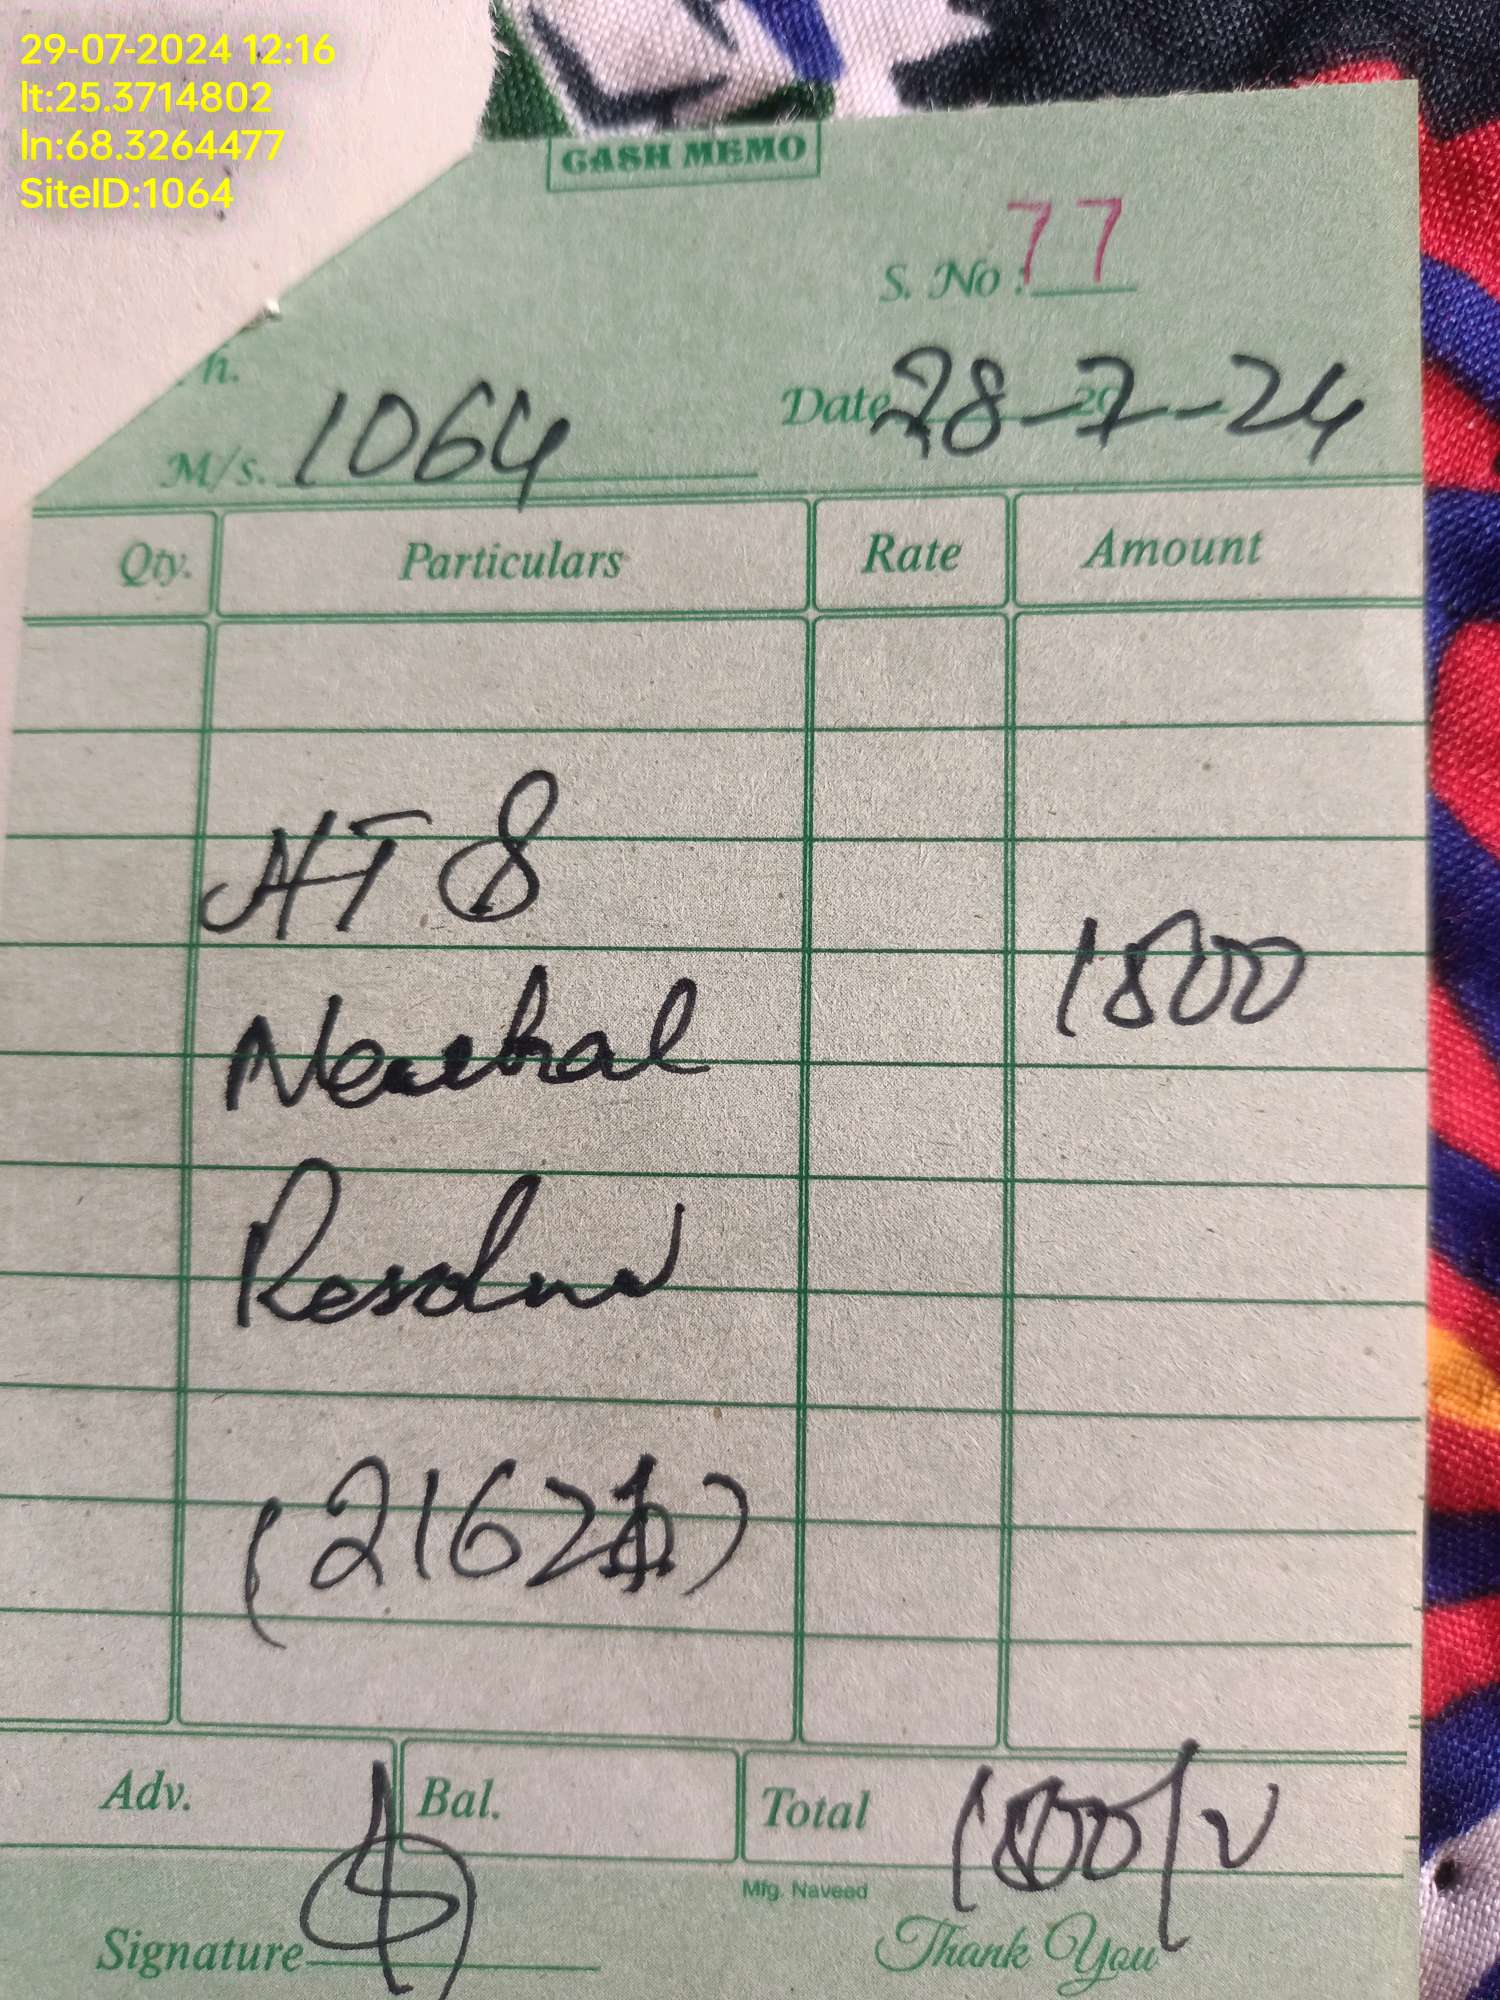 29-07-2024 12:16
lt:25.3714802
ln:68.3264477
SiteID:1064
CASH MEMO
S. No : 77
h.
Date 28-7-24
M/s. 1064
Qty. Particulars Rate Amount
HT 8
1800
Neutral
Resolve
Adv. Bal. Total 1800/
Mfg. Naveed
Signature
Thank You